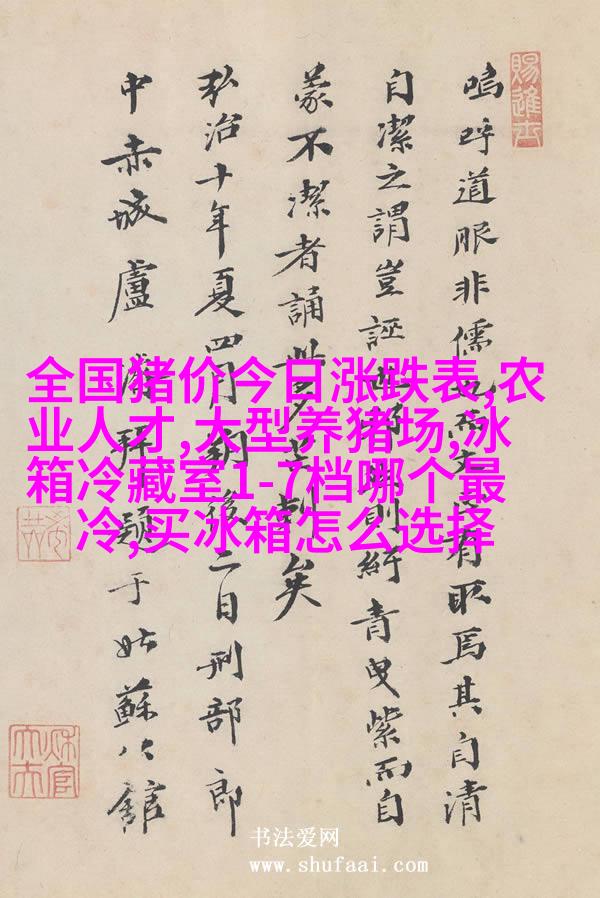 賜進士
嗚呼道服非儒而有取焉其自清
自潔之謂豈誣則紆青曳紫而自
蒙不潔者誦此矣
弘治十年夏四月二日刑部郎
中赤城盧拜題于姑蘇公館
全国猪价今日涨跌表,农
业人才,大型养猪场,冰
箱冷藏室1-7档哪个最
冷,买冰箱怎么选择
书法爱网
www.shufaai.com